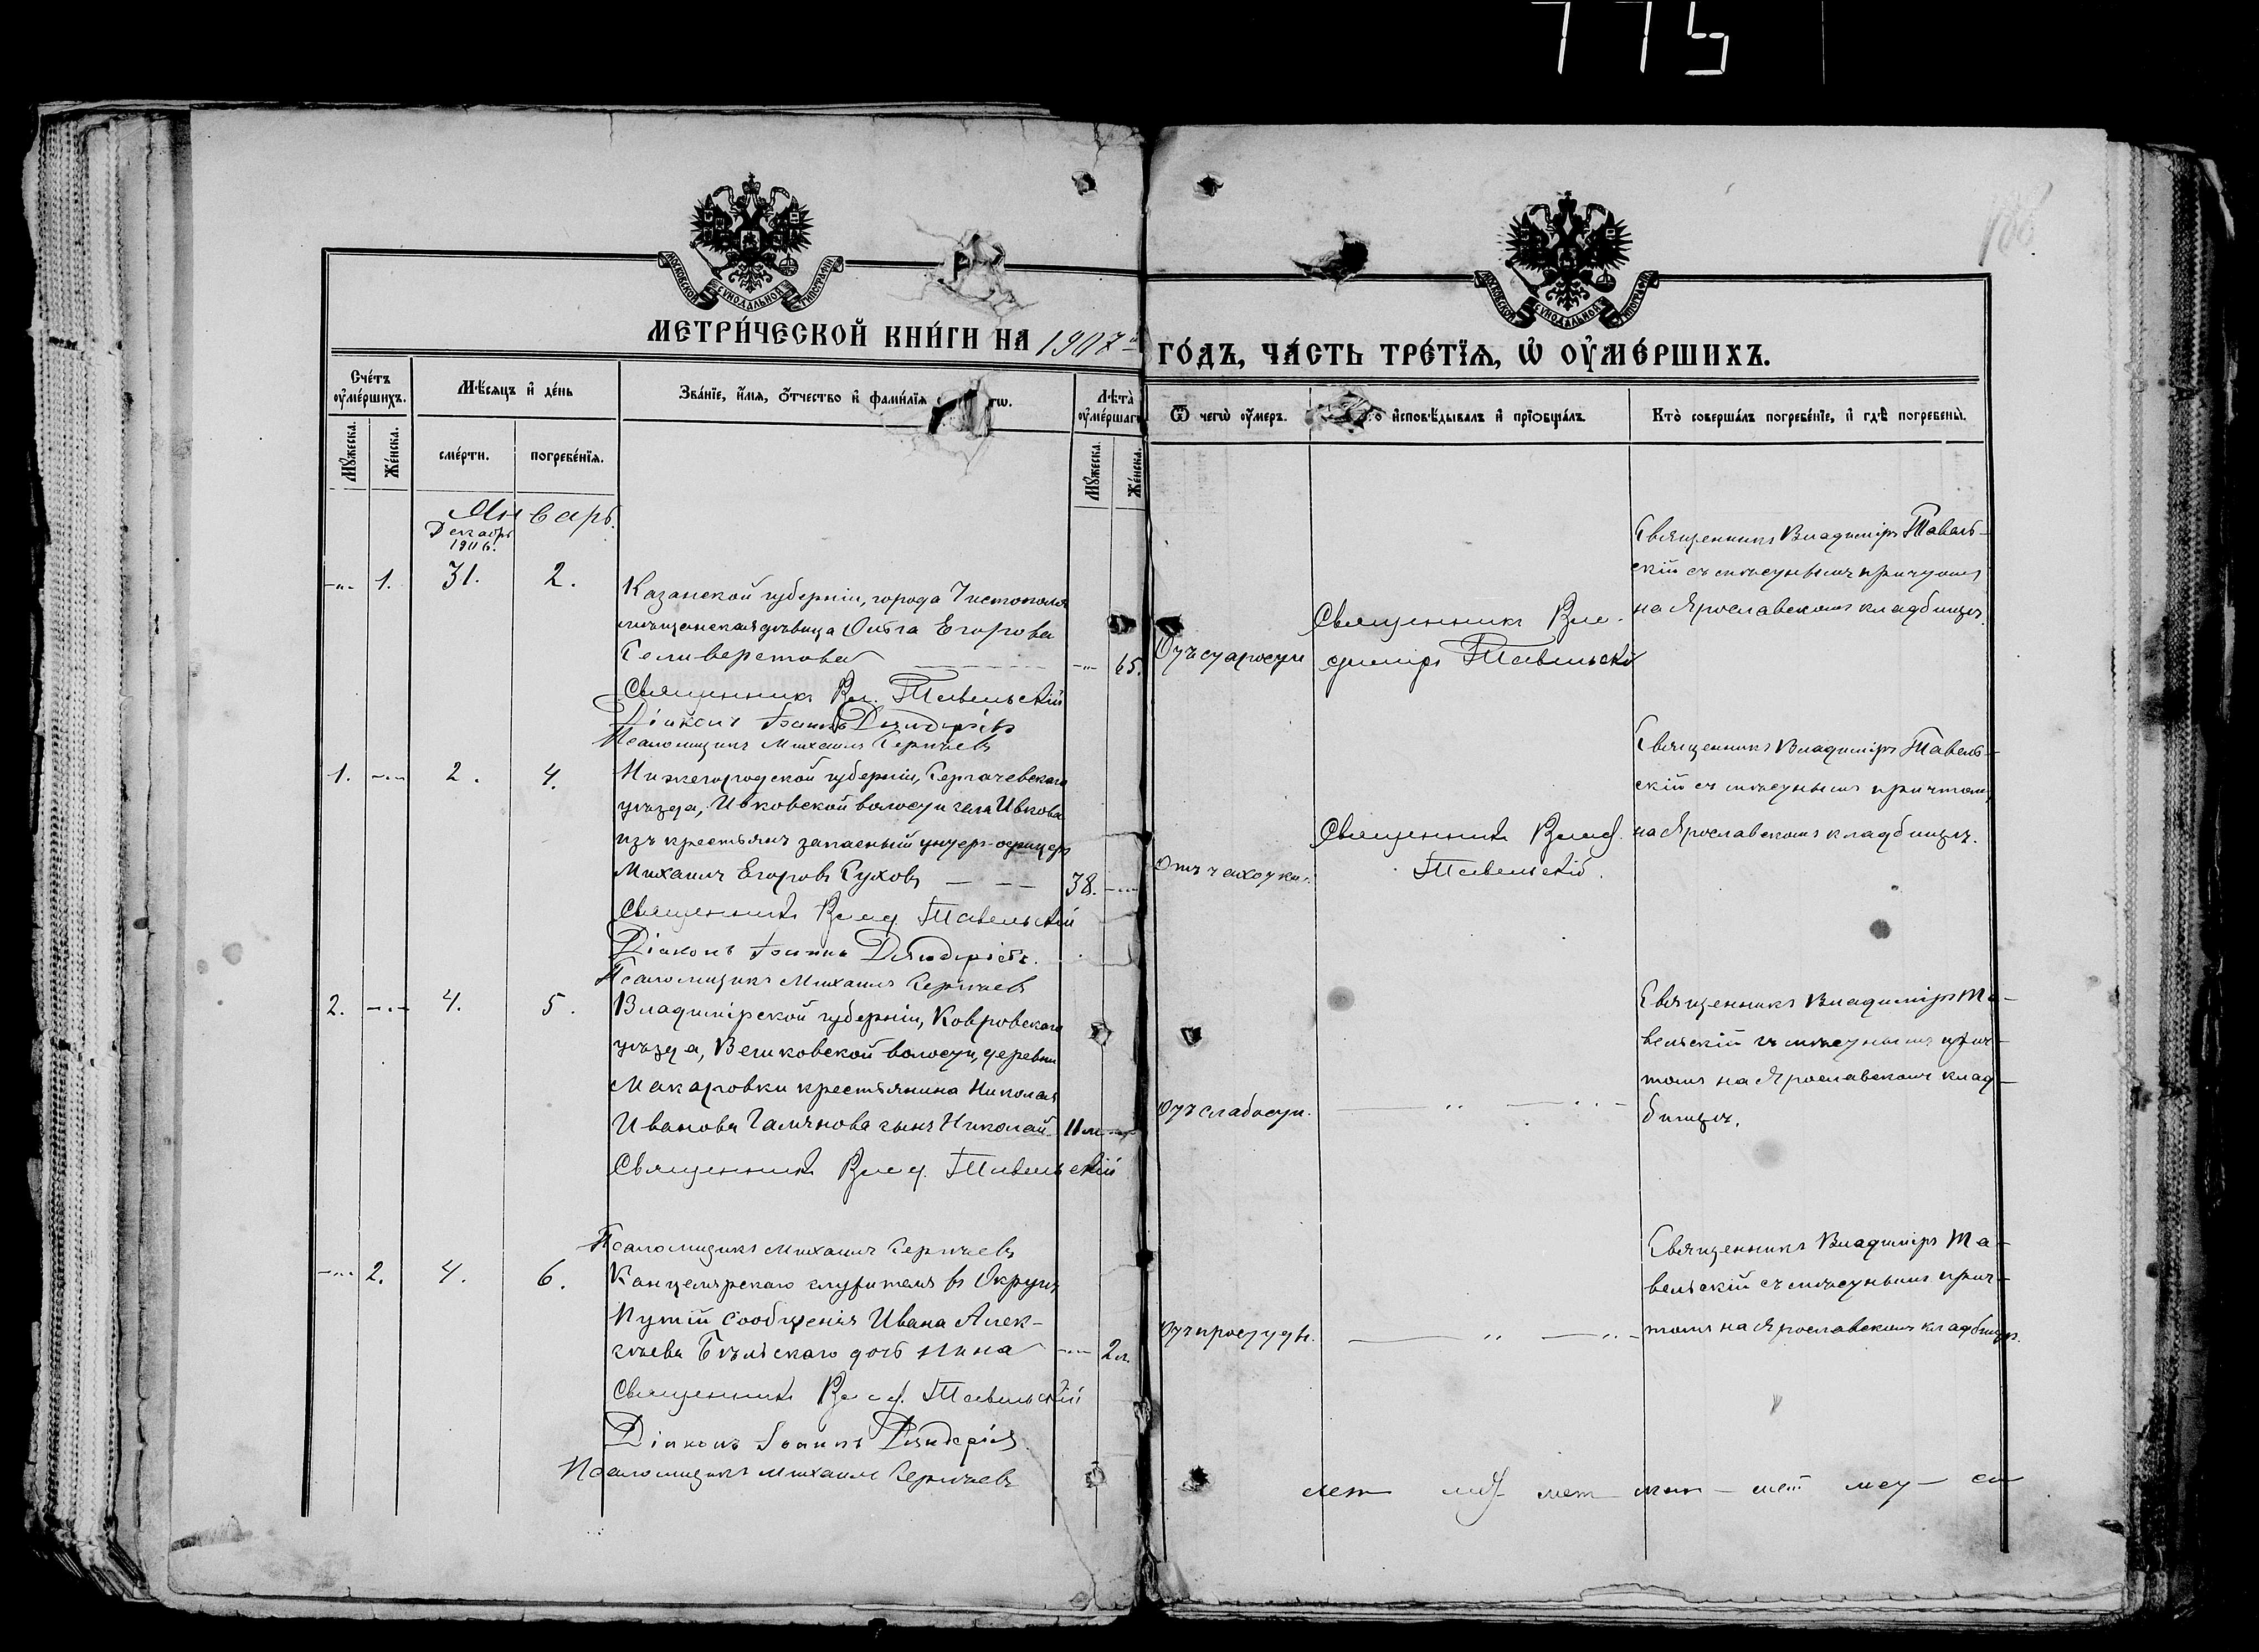 775
188
МОСКОВСКОЙ СѴНОДАЛЬНОЙ ТИПОГРАФІИ
МОСКОВСКОЙ СѴНОДАЛЬНОЙ ТИПОГРАФІИ
МЕТРИ́ЧЕСКОЙ КНИ́ГИ НА 1907й
ГО́ДЪ, ЧА́СТЬ ТРЕ́ТЇѦ, Ѡ҆ ОУ҆МЕ́РШИХЪ.
Сче́тъ
оу҆ме́ршихъ.
Мꙋ́жеска.
Же́нска.
Мѣ́сѧцъ и҆ де́нь
сме́рти.
погребе́нїѧ.
Зва́нїе, и҆́мѧ, ѻ҆́тчество и҆ фами́лїѧ
Лѣ́та̀
оу҆ме́ршагѡ
Мꙋ́жеска.
Же́нска.
Ѿ чегѡ̀ оу҆́меръ.
и҆сповѣ́дывалъ и҆ прїѡбща́лъ.
Кто̀ соверша́лъ погребе́нїе, и҆ гдѣ̀ погребены̀.
Январь.
Декабрь
1906.
-"- 1. 31. 2.
Казанской губерніи, города Чистополя
мѣщанская дѣвица Ольга Егорова
Селиверстова -"- 65.
Священникъ Вл. Тавельскій
Діаконъ Іоаннъ
Псаломщикъ Михаилъ Сергѣевъ
Отъ старости
Священникъ Вла-
димиръ Тавельскій
Священникъ Владиміръ Тавель-
скій съ мѣстнымъ причтомъ
на Ярославскомъ кладбищѣ.
1. -"- 2. 4.
Нижегородской губерніи, Сергачевскаго
уѣзда, Ивковской волости села Ивкова
изъ крестьянъ запасный унтеръ-офицеръ
Михаилъ Егоровъ Суховъ 38. -"-
Священникъ Влад. Тавельскій
Діаконъ Іоаннъ
Псаломщикъ Михаилъ Сергѣевъ
Отъ чахотки.
Священникъ Влад.
Тавельскій.
Священникъ Владиміръ Тавель-
скій съ мѣстнымъ причтомъ
на Ярославскомъ кладбищѣ.
2. -"- 4. 5.
Владимірской губерніи, Ковровскаго
уѣзда, Великовской волости, деревни
Макаровки крестьянина Николая
Иванова сынъ Николай 11 м. -"-
Священникъ Влад. Тавельскій
Псаломщикъ Михаилъ Сергѣевъ
Отъ слабости.
Священникъ Владиміръ Та-
вельскій съ мѣстнымъ прич-
томъ на Ярославскомъ клад-
бищѣ.
-"- 2. 4. 6.
Канцелярскаго служителя въ Округѣ
Путій Сообщенія Ивана Алек-
сѣева Бѣльскаго дочь Нина -"- 2 л.
Священникъ Влад. Тавельскій
Діаконъ Іоаннъ
Псаломщикъ Михаилъ Сергѣевъ
Отъ простуды.
Священникъ Владиміръ Та-
вельскій съ мѣстнымъ прич-
томъ на Ярославскомъ кладбищѣ.